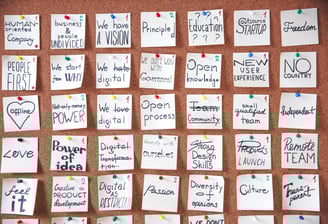 HUMAN-
ORIENTED
Company
business
& people
UNDIVIDED
We have
A VISION
Principle
Education
? ? ?
Outsource
STARTUP
Freedom
PEOPLE
FIRST
We start
to WHY
We hate
digital
We don't work
with
Government!
Open
knowledge
NEW
USER
EXPERIENCE
NO
COUNTRY
offline
Not only money
POWER
We love
digital
Open
process
Team
Community
small
qualified
team
Independent
Love
Power
of idea
Digital
transformation
Honesty
with
ourselves
Strong
Design
Skills
LAUNCH
REMOTE
TEAM
Feel
it
Creative in
PRODUCT
development
Digital
STRONG
Passion
Diversity
of
opinions
Culture
Transparent